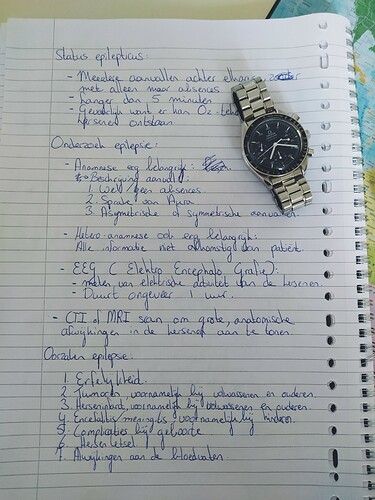 Status epilepticus:
- Meerdere aanvallen achter elkaar,
met alleen maar absences
- Langer dan 5 minuten
- Gevaarlijk want er kan O2-
hersenen ontstaan
Onderzoek epilepsie:
- Anamnese erg belangrijk:
Beschrijving aanval:
1. Wel/geen absences.
2. Sprake van Aura
3. Asymetrische of symetrische aanvallen.
- Hetero-anamnese ook erg belangrijk:
Alle informatie niet afkomstig van patiënt.
- EEG (Elektro Encephalo Grafie):
- meten van elektrische activiteit van de hersenen
- Duurt ongeveer 1 uur.
- CT of MRI scan om grote, anatomische
afwijkingen in de hersenen aan te tonen.
Oorzaken epilepsie:
1. Erfelijkheid.
2. Tumoren, voornamelijk bij volwassenen en ouderen.
3. Herseninfarct, voornamelijk bij volwassenen en ouderen.
4. Encefalitis/meningitis voornamelijk bij kinderen.
5. Complicaties bij geboorte
6. Hersenletsel
7. Afwijkingen aan de bloedvaten